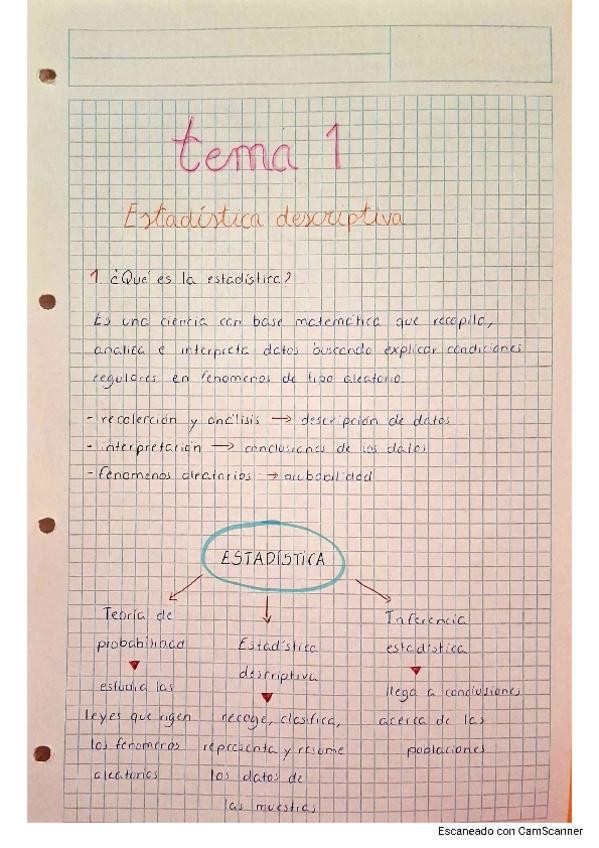 tema 1
Estadística descriptiva
1 ¿Qué es la estadística?
Es una ciencia con base matemática que recopila,
analiza e interpreta datos buscando explicar condiciones
regulares en fenomenos de tipo aleatorio.
- recolección y análisis → descripción de datos
- interpretación → conclusiones de los datos
- fenomenos aleatorios → probabilidad
ESTADÍSTICA
Teoría de
probabilidad
▼
estudia las
leyes que rigen
los fenomenos
aleatorios
Estadística
descriptiva
▼
recoge, clasifica,
representa y resume
los datos de
las muestras
Inferencia
estadística
▼
llega a conclusiones
acerca de las
poblaciones
Escaneado con CamScanner